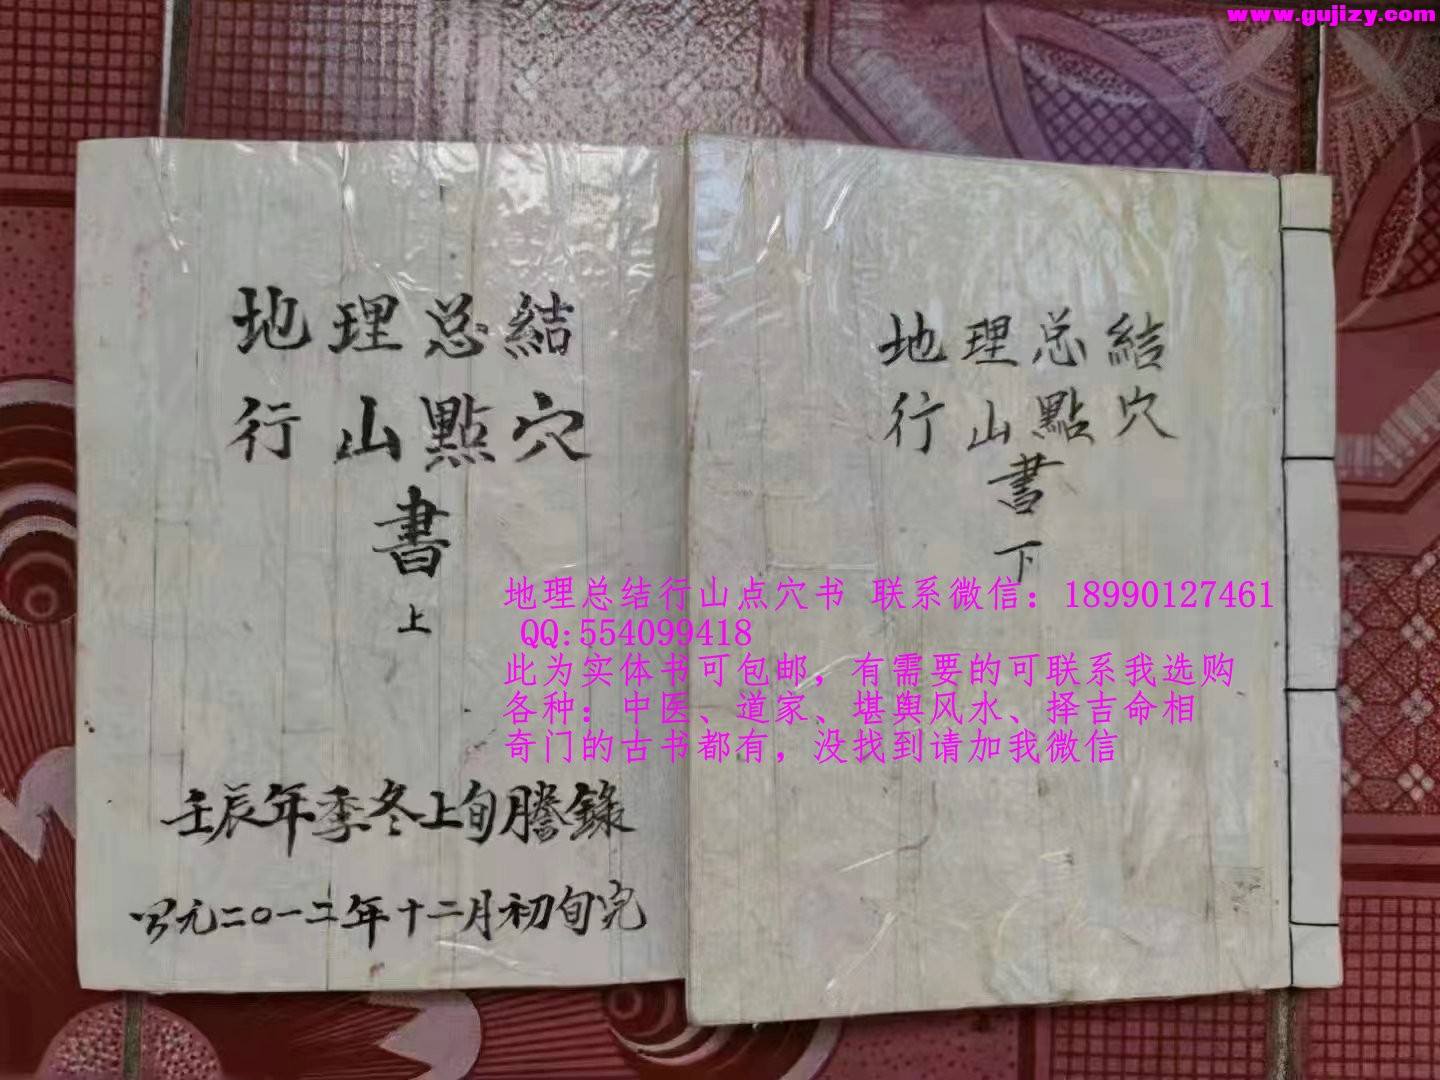 www.gujizy.com
地理总結
行山點穴
書
上
壬辰年季冬上旬謄錄
公元二〇一二年十二月初旬完
地理总結
行山點穴
書
下
地理总结行山点穴书 联系微信：18990127461
QQ:554099418
此为实体书可包邮，有需要的可联系我选购
各种：中医、道家、堪舆风水、择吉命相
奇门的古书都有，没找到请加我微信